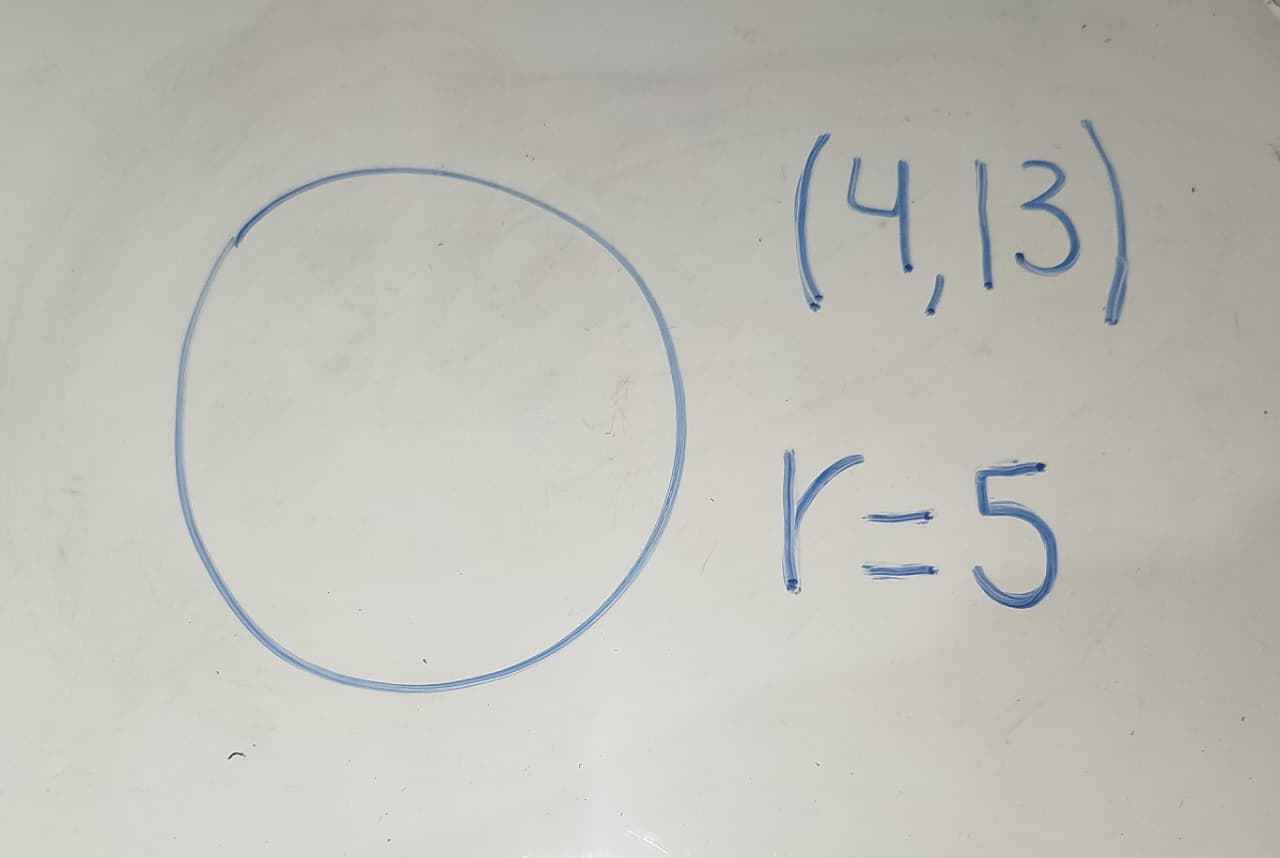 (4,13)
r=5